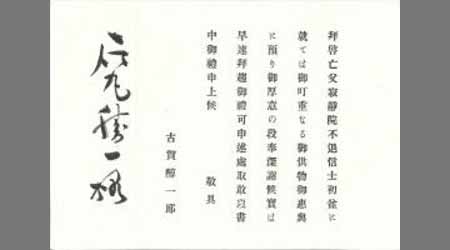 拜啓亡父寂靜院不退信士初盆に
就ては御叮重なる御供物御惠與
に預り御厚意の段奉深謝候實は
早速拜趨御禮可申述處取敢以書
中御禮申上候 敬具
古賀醇一郎
石丸勝一様